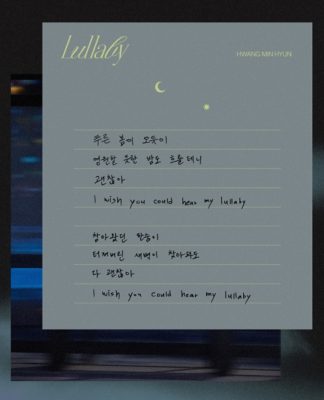 Lullaby
HWANG MIN HYUN
푸른 봄이 오듯이
영원할 듯한 밤도 흐를 테니
괜찮아
I wish you could hear my lullaby
참아왔던 한숨이
터져버린 새벽이 찾아와도
다 괜찮아
I wish you could hear my lullaby